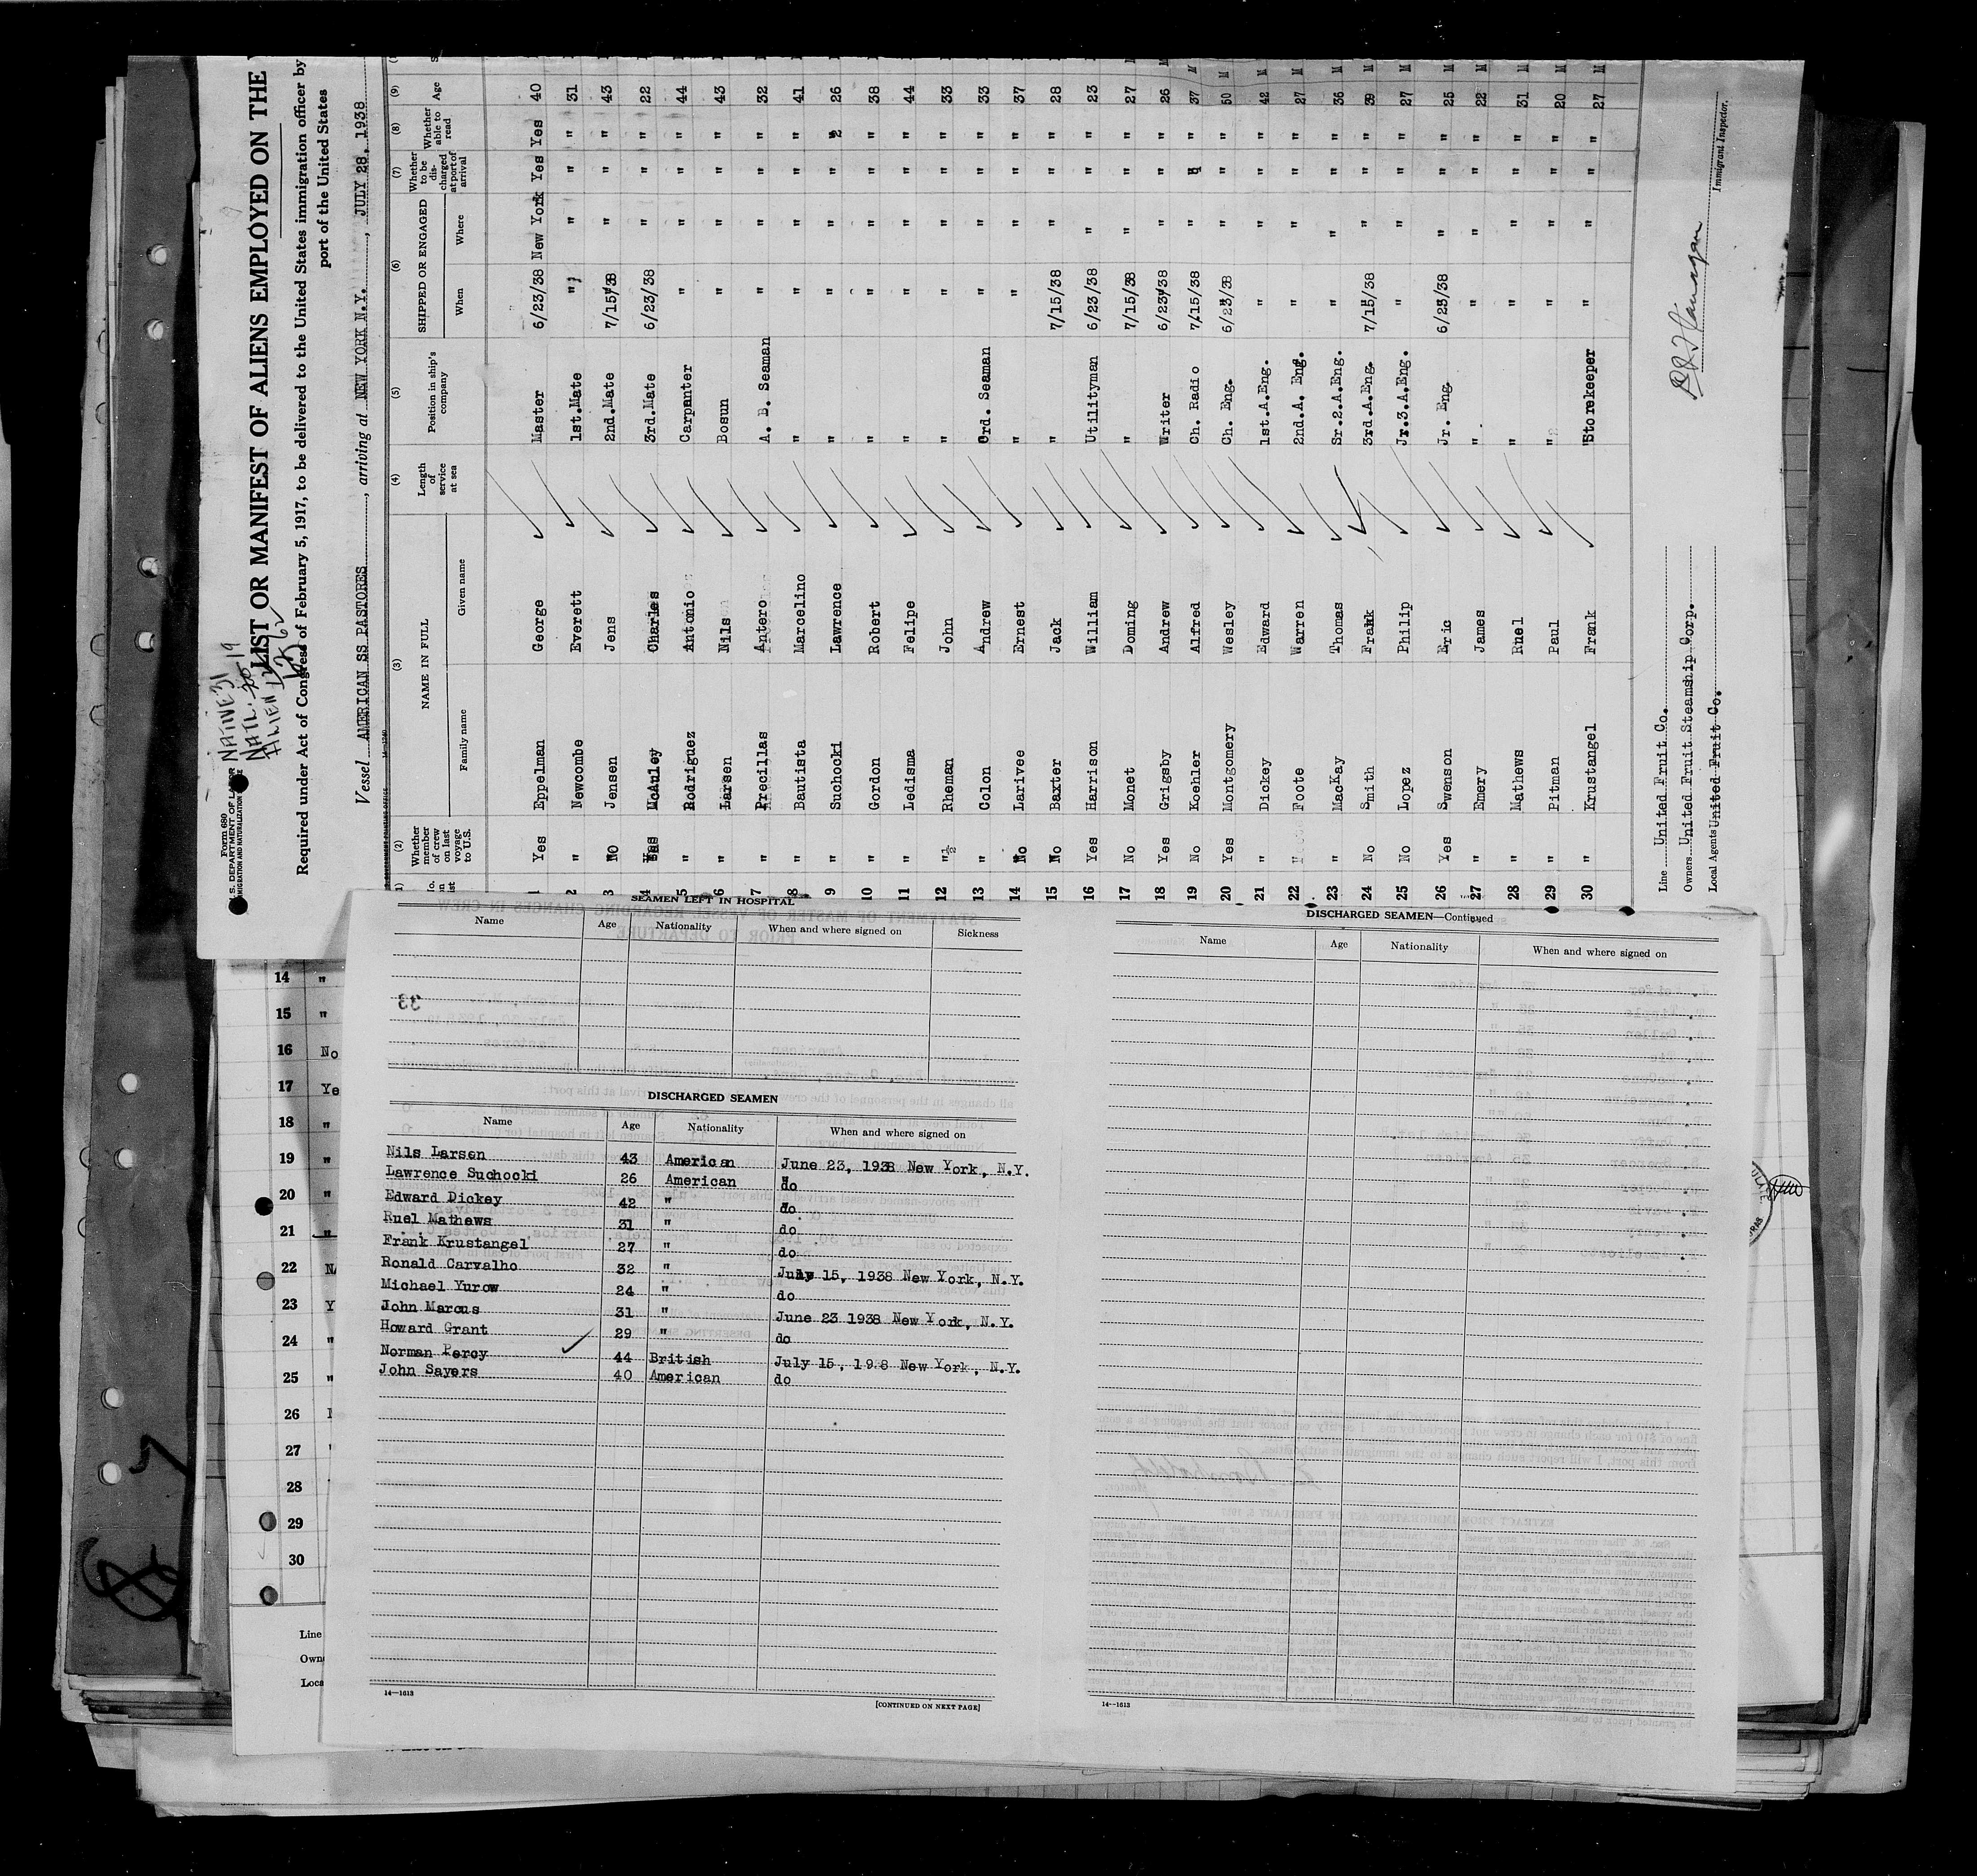 Form 680
U. S. DEPARTMENT OF LABOR
IMMIGRATION AND NATURALIZATION
NATIVE 31
NATL. 19
ALIEN 12
62
LIST OR MANIFEST OF ALIENS EMPLOYED ON THE
Required under Act of Congress of February 5, 1917, to be delivered to the United States immigration officer by
port of the United States
Vessel AMERICAN SS PASTORES, arriving at NEW YORK N.Y., JULY 28, 1938
(2) (3) (4) (5) (6) (7) (8) (9)
Whether member of crew on last voyage to U.S. NAME IN FULL Length of service at sea Position in ship's company SHIPPED OR ENGAGED Whether to be discharged at port of arrival Whether able to read Age
Family name Given name When Where
1 Yes Eppelman George Master 6/23/38 New York Yes Yes 40
2 " Newcombe Everett 1st.Mate " " " " 31
3 No Jensen Jens 2nd.Mate 7/15/38 " " " 43
4 Yes McAuley Charles 3rd.Mate 6/23/38 " " " 22
5 " Rodriguez Antonio Carpanter " " " " 44
6 " Larsen Nils Bosun " " " " 43
7 " Precillas Antero A. B. Seaman " " " " 32
8 " Bautista Marcelino " " " " " 41
9 " Suchocki Lawrence " " " " " 26
10 " Gordon Robert " " " " " 38
11 " Ledisma Felipe " " " " " 44
12 " Rheman John " " " " " 33
13 " Colon Andrew Ord. Seaman " " " " 33
14 No Larivee Ernest " " " " " 37
15 No Baxter Jack " 7/15/38 " " " 28
16 Yes Harrison William Utilityman 6/23/38 " " " 23
17 No Monet Doming " 7/15/38 " " " 27
18 Yes Grigsby Andrew Writer 6/23/38 " " " 26
19 No Koehler Alfred Ch. Radio 7/15/38 " " " 37
20 Yes Montgomery Wesley Ch. Eng. 6/23/38 " " " 50
21 " Dickey Edward 1st.A.Eng. " " " " 42
22 " Foote Warren 2nd.A. Eng. " " " " 27
23 " MacKay Thomas Sr.2.A.Eng. " " " " 36
24 No Smith Frank 3rd.A.Eng. 7/15/38 " " " 39
25 No Lopez Philip Jr.3.A.Eng. " " " " 27
26 Yes Swenson Eric Jr. Eng. 6/23/38 " " " 25
27 " Emery James " " " " " 22
28 " Mathews Ruel " " " " " 31
29 " Pitman Paul " " " " " 20
30 " Krustangel Frank Storekeeper " " " " 27
Line United Fruit Co.
Owners United Fruit Steamship Corp.
Local Agents United Fruit Co.
Immigrant Inspector.
14 "
15 "
16 No
17 Ye
18 "
19 "
20 "
21 "
22 N
23 Y
24 "
25 "
26
27
28
29
30
Line
Own
Loca
SEAMEN LEFT IN HOSPITAL
Name Age Nationality When and where signed on Sickness
DISCHARGED SEAMEN
Name Age Nationality When and where signed on
Nils Larsen 43 American June 23, 1938 New York, N.Y.
Lawrence Suchocki 26 American do
Edward Dickey 42 " do
Ruel Mathews 31 " do
Frank Krustangel 27 " do
Ronald Carvalho 32 " July 15, 1938 New York, N.Y.
Michael Yurow 24 " do
John Marcus 31 " June 23 1938 New York, N.Y.
Howard Grant 29 " do
Norman Percy 44 British July 15, 19 8 New York, N.Y.
John Sayers 40 American do
14—1613
[CONTINUED ON NEXT PAGE]
DISCHARGED SEAMEN—Continued
Name Age Nationality When and where signed on
14—1613